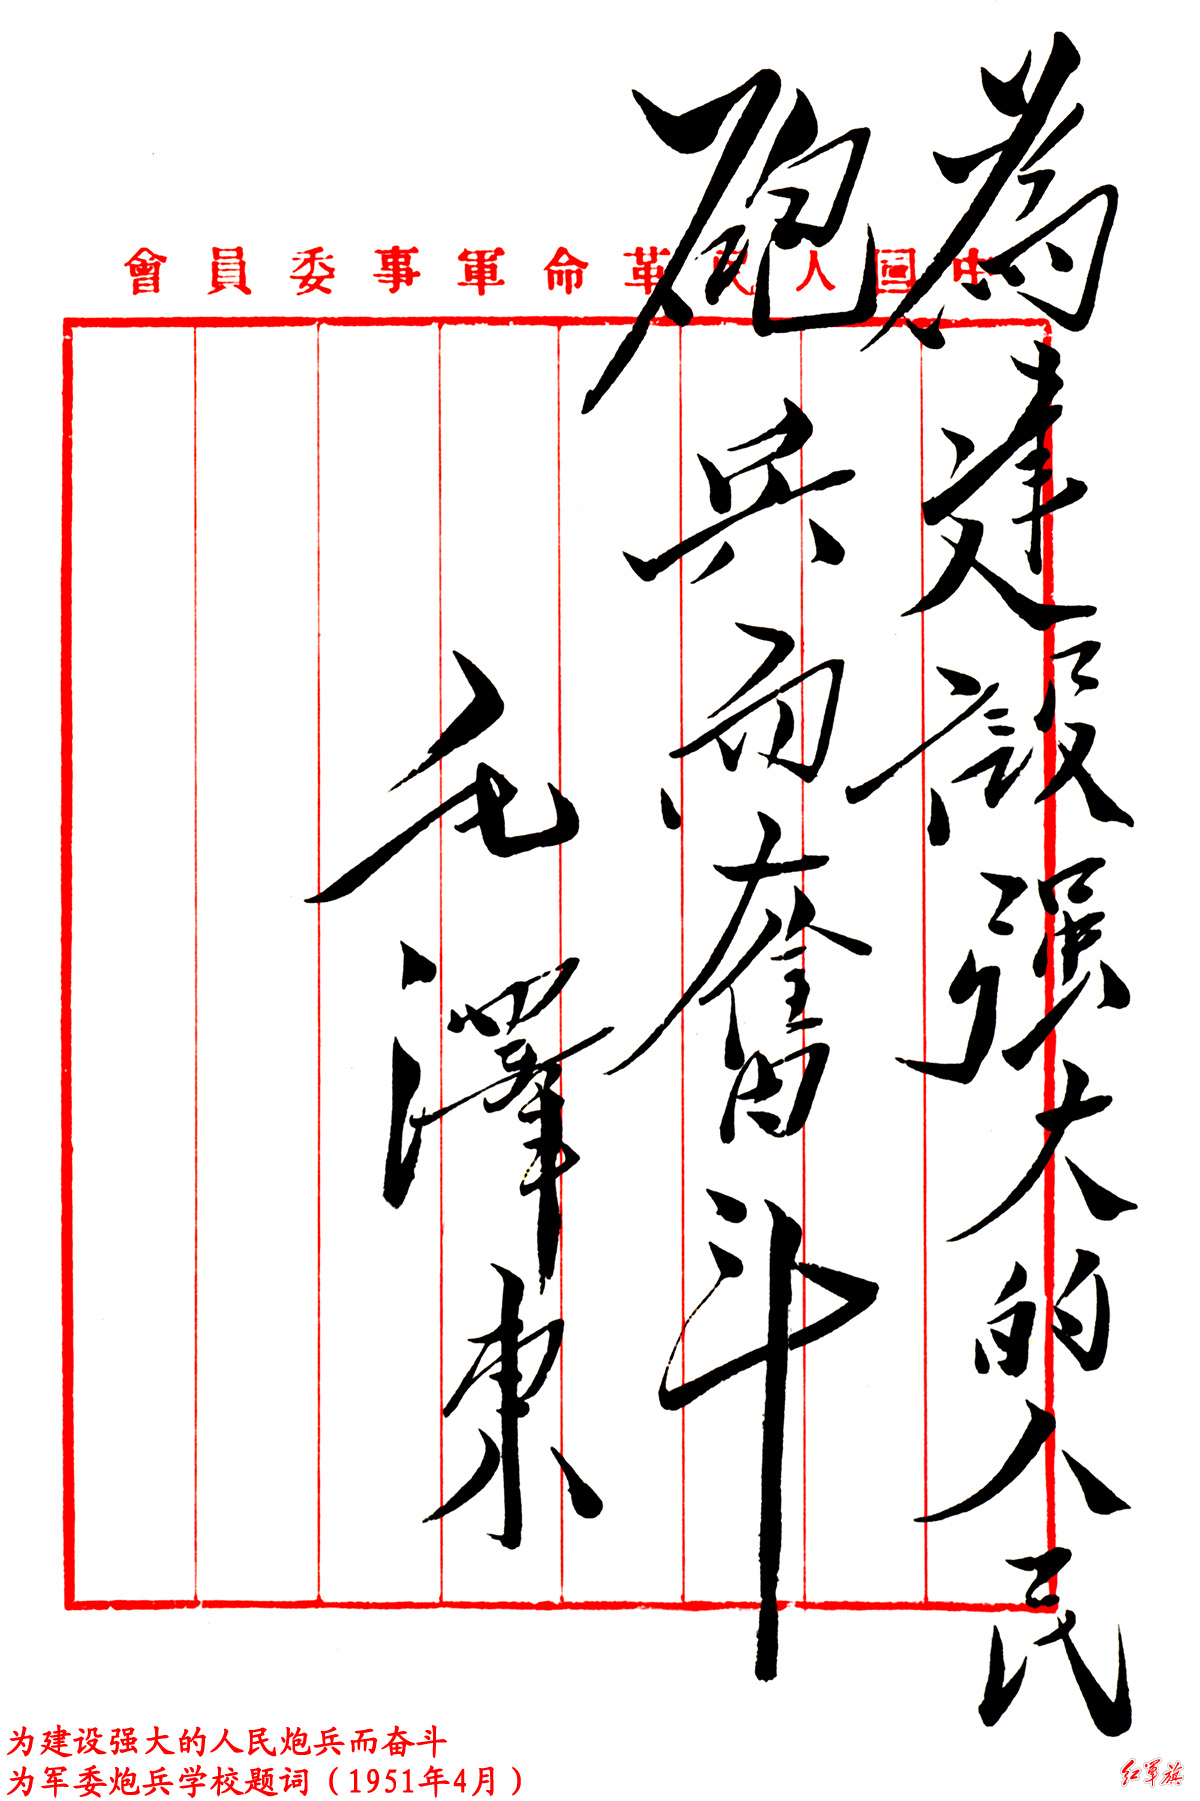 中國人民革命軍事委員會
為建設强大的人民
砲兵而奮斗
毛澤東
为建设强大的人民炮兵而奋斗
为军委炮兵学校题词（1951年4月）
红军旗